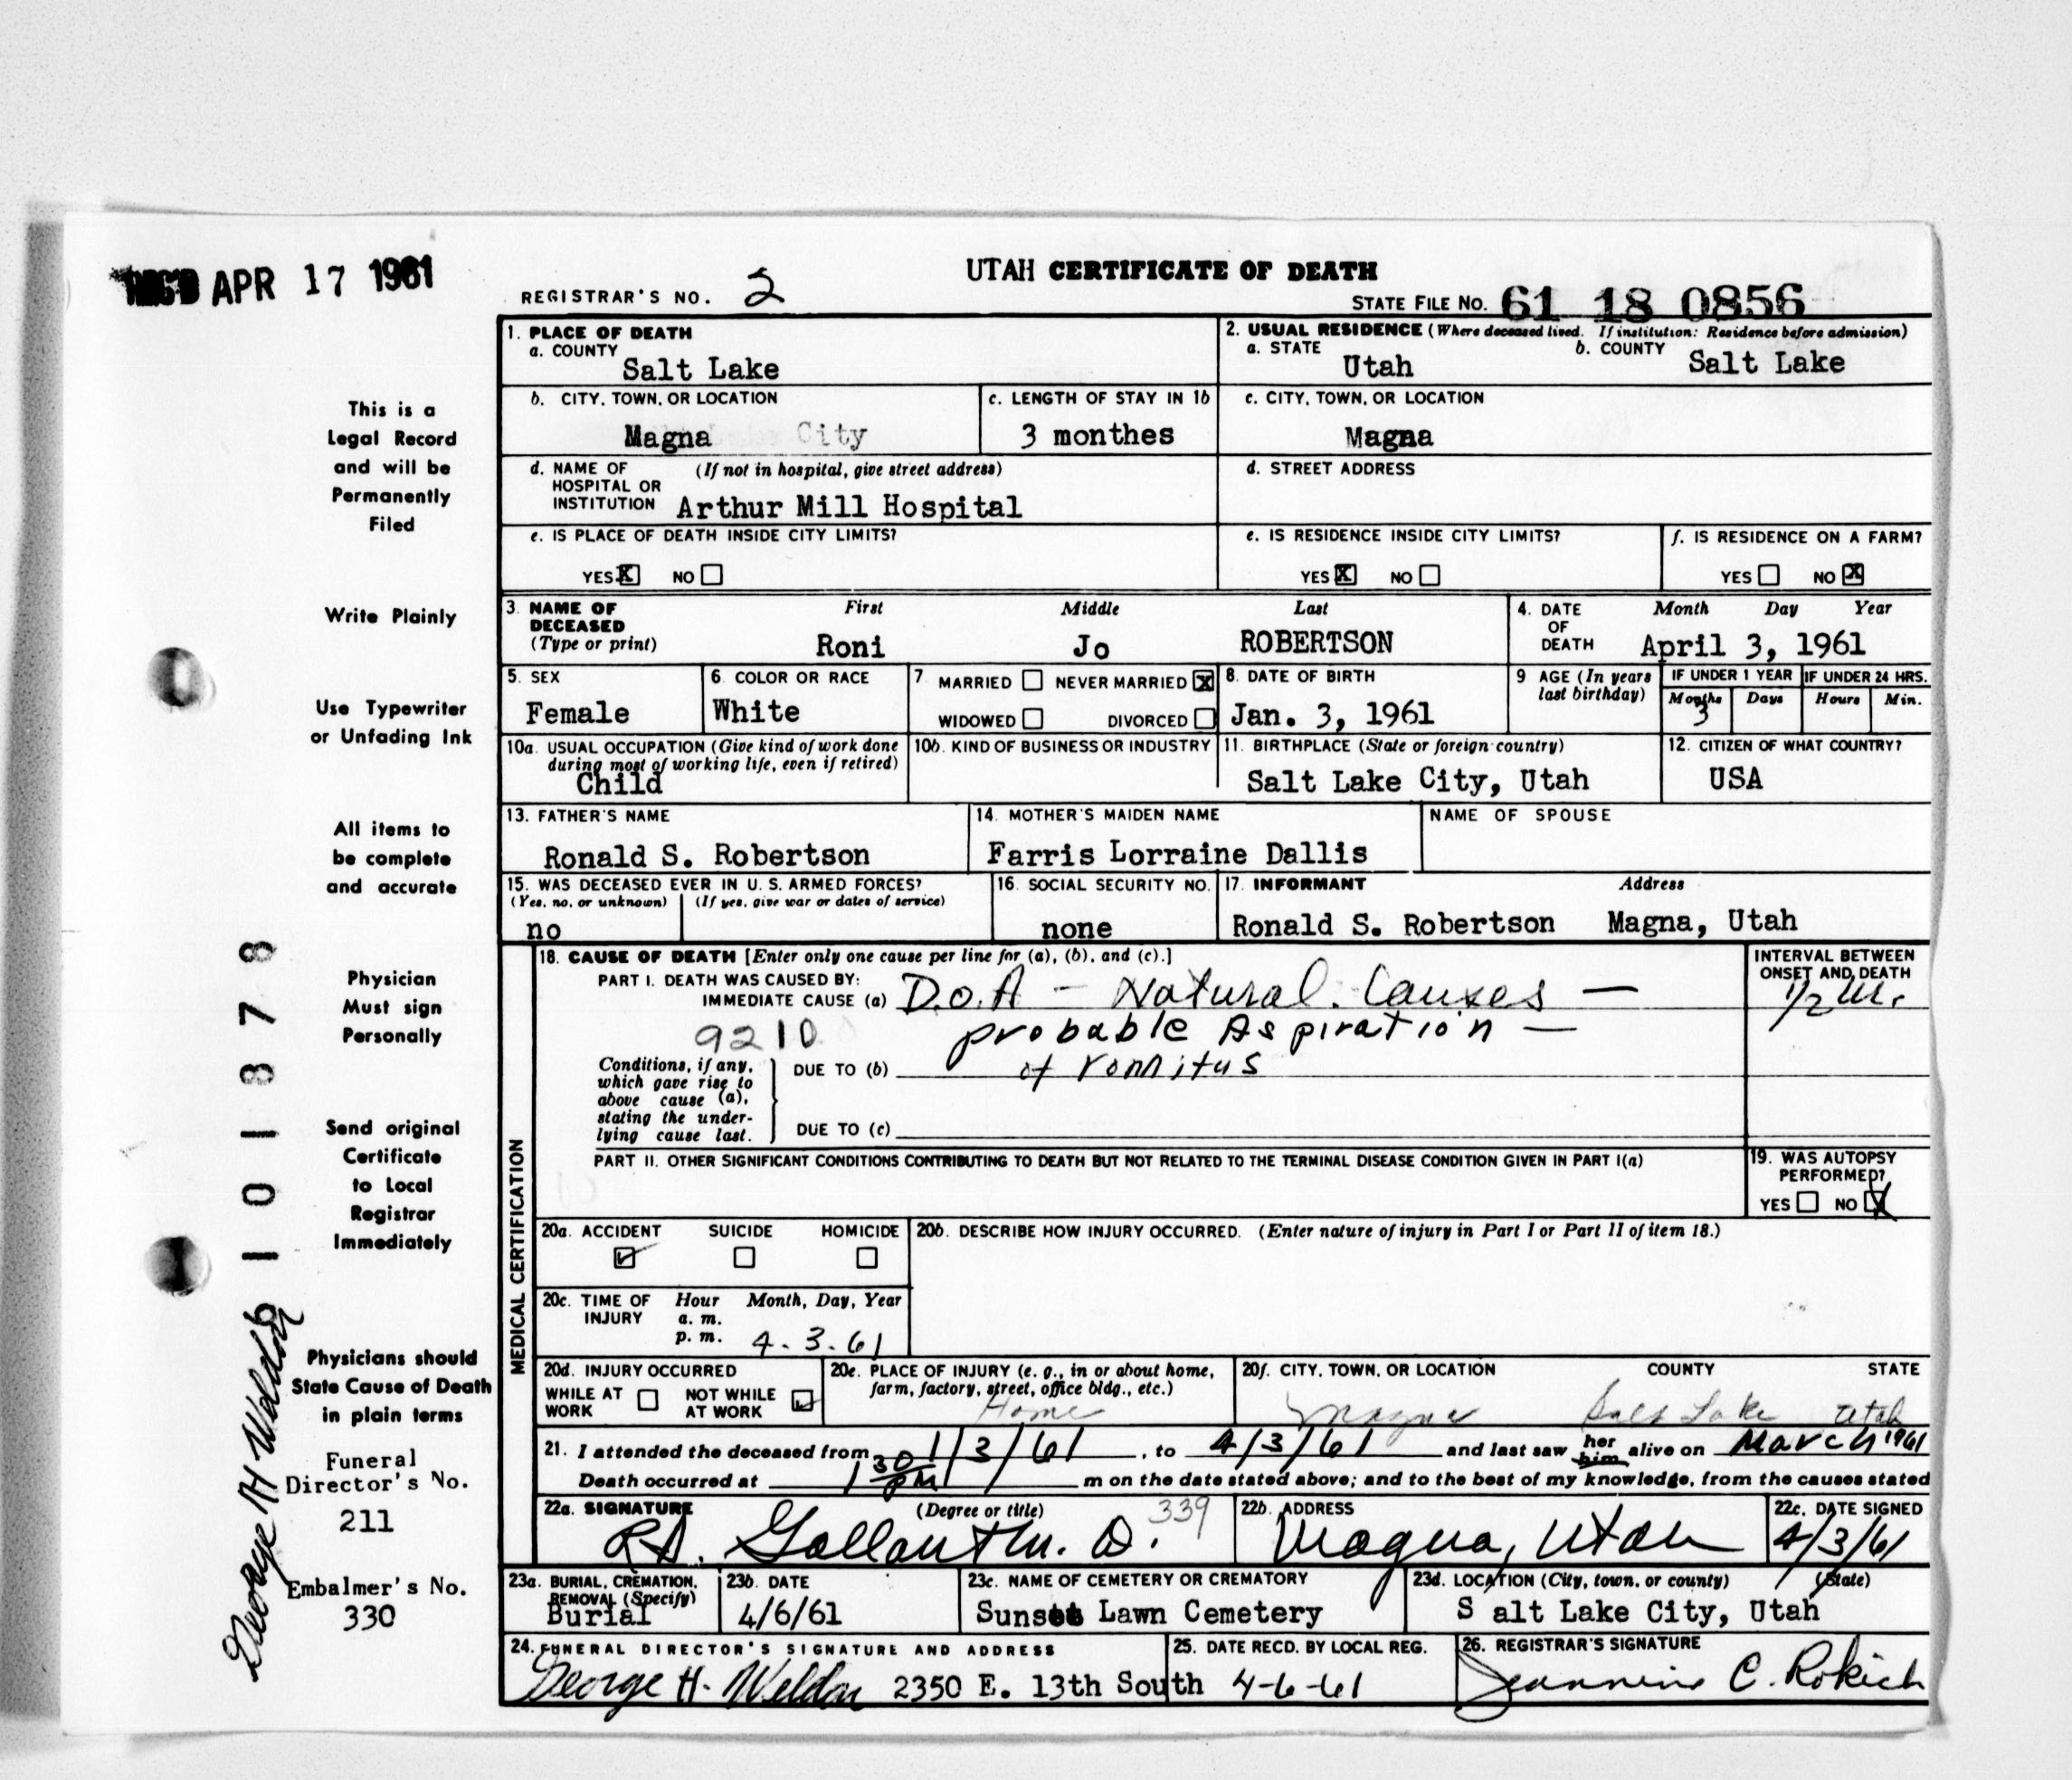 REC'D APR 17 1961
UTAH CERTIFICATE OF DEATH
REGISTRAR'S NO. 2
STATE FILE NO. 61 18 0856
1. PLACE OF DEATH
a. COUNTY
Salt Lake
2. USUAL RESIDENCE (Where deceased lived. If institution: Residence before admission)
a. STATE Utah b. COUNTY Salt Lake
b. CITY, TOWN, OR LOCATION
Magna City
c. LENGTH OF STAY IN 1b
3 monthes
c. CITY, TOWN, OR LOCATION
Magna
d. NAME OF (If not in hospital, give street address)
HOSPITAL OR
INSTITUTION Arthur Mill Hospital
d. STREET ADDRESS
e. IS PLACE OF DEATH INSIDE CITY LIMITS?
YES X NO
e. IS RESIDENCE INSIDE CITY LIMITS?
YES X NO
f. IS RESIDENCE ON A FARM?
YES NO X
3. NAME OF DECEASED (Type or print)
First Middle Last
Roni Jo ROBERTSON
4. DATE OF DEATH
Month Day Year
April 3, 1961
5. SEX
Female
6. COLOR OR RACE
White
7 MARRIED NEVER MARRIED X
WIDOWED DIVORCED
8. DATE OF BIRTH
Jan. 3, 1961
9 AGE (In years last birthday)
IF UNDER 1 YEAR IF UNDER 24 HRS.
Months Days Hours Min.
3
10a. USUAL OCCUPATION (Give kind of work done
during most of working life, even if retired)
Child
10b. KIND OF BUSINESS OR INDUSTRY
11. BIRTHPLACE (State or foreign country)
Salt Lake City, Utah
12. CITIZEN OF WHAT COUNTRY?
USA
13. FATHER'S NAME
Ronald S. Robertson
14. MOTHER'S MAIDEN NAME
Farris Lorraine Dallis
NAME OF SPOUSE
15. WAS DECEASED EVER IN U. S. ARMED FORCES?
(Yes, no, or unknown) (If yes, give war or dates of service)
no
16. SOCIAL SECURITY NO.
none
17. INFORMANT Address
Ronald S. Robertson Magna, Utah
MEDICAL CERTIFICATION
18. CAUSE OF DEATH [Enter only one cause per line for (a), (b), and (c).]
PART I. DEATH WAS CAUSED BY:
IMMEDIATE CAUSE (a) D.O.A - Natural. Causes —
9210 probable Aspiration —
DUE TO (b) of vomitus
Conditions, if any,
which gave rise to
above cause (a),
stating the under-
lying cause last.
DUE TO (c)
INTERVAL BETWEEN
ONSET AND DEATH
1/2 Hr.
PART II. OTHER SIGNIFICANT CONDITIONS CONTRIBUTING TO DEATH BUT NOT RELATED TO THE TERMINAL DISEASE CONDITION GIVEN IN PART I(a)
19. WAS AUTOPSY
PERFORMED?
YES NO X
20a. ACCIDENT SUICIDE HOMICIDE
20b. DESCRIBE HOW INJURY OCCURRED. (Enter nature of injury in Part I or Part II of item 18.)
20c. TIME OF INJURY
Hour Month, Day, Year
a. m.
p. m. 4. 3. 61
20d. INJURY OCCURRED
WHILE AT WORK NOT WHILE AT WORK
20e. PLACE OF INJURY (e. g., in or about home,
farm, factory, street, office bldg., etc.)
Home
20f. CITY, TOWN, OR LOCATION COUNTY STATE
Magna Salt Lake Utah
21. I attended the deceased from 1/3/61, to 4/3/61 and last saw her him alive on March 1961
Death occurred at 1 30 PM m on the date stated above; and to the best of my knowledge, from the causes stated
22a. SIGNATURE (Degree or title) 339
R.A. Gallant M. D.
22b. ADDRESS
Magna, Utah
22c. DATE SIGNED
4/3/61
23a. BURIAL, CREMATION,
REMOVAL (Specify)
Burial
23b. DATE
4/6/61
23c. NAME OF CEMETERY OR CREMATORY
Sunset Lawn Cemetery
23d. LOCATION (City, town, or county) (State)
S alt Lake City, Utah
24. FUNERAL DIRECTOR'S SIGNATURE AND ADDRESS
George H. Weldon 2350 E. 13th South
25. DATE RECD. BY LOCAL REG.
4-6-61
26. REGISTRAR'S SIGNATURE
Jeannine C. Rokich
This is a
Legal Record
and will be
Permanently
Filed
Write Plainly
Use Typewriter
or Unfading Ink
All items to
be complete
and accurate
Physician
Must sign
Personally
Send original
Certificate
to Local
Registrar
Immediately
Physicians should
State Cause of Death
in plain terms
Funeral
Director's No.
211
Embalmer's No.
330
George H Weldon
6 101878